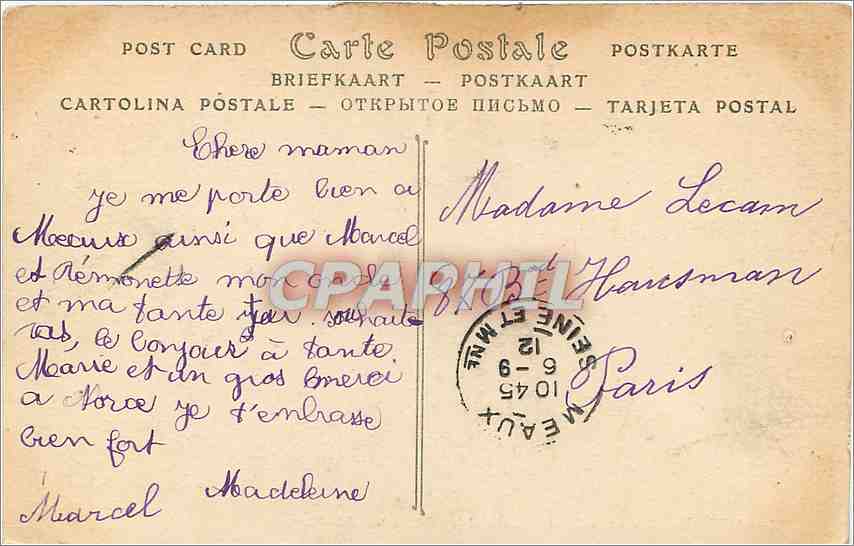 POST CARD Carte Postale POSTKARTE
BRIEFKAART — POSTKAART
CARTOLINA POSTALE — ОТКРЫТОЕ ПИСЬМО — TARJETA POSTAL
Chere maman
je me porte bien a
Meaux ainsi que Marcel
et Rémonette mon oncle
et ma tante tu souhaite
ras, le bonjour à tante
Marie et un gros merci
a je t'enbrasse
bien fort
Madeleine
Marcel
Madame Lecam
87 Bd Hausman
Paris
MEAUX
10 45
6 -9
12
SEINE ET MNE
CPAPHIL